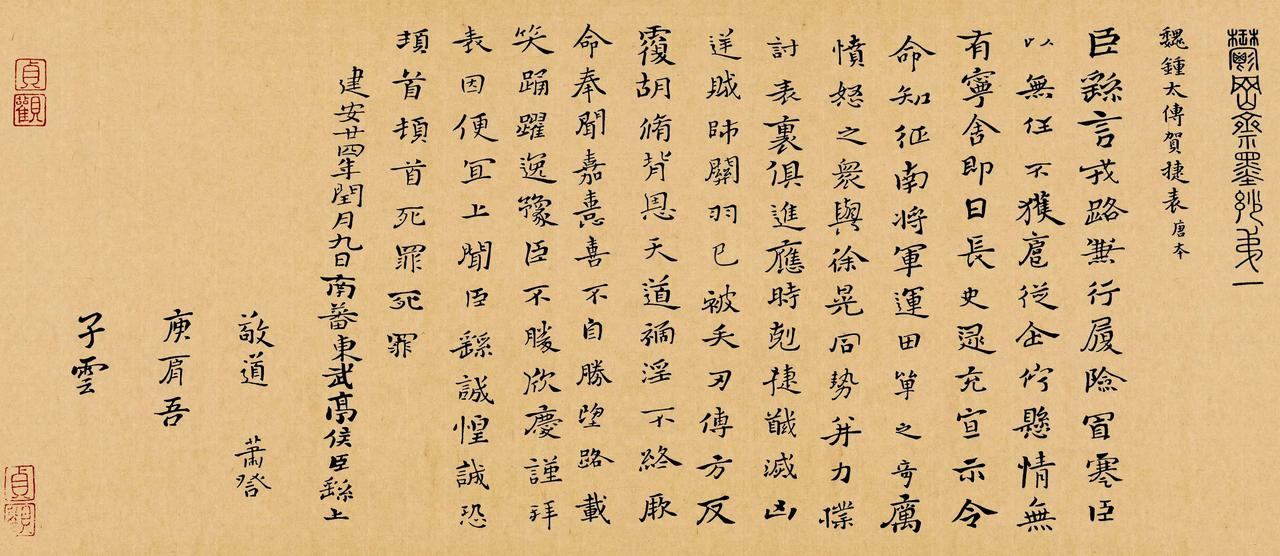 鬱岡齋墨妙第一
魏鍾太傅賀捷表 唐本
臣繇言戎路兼行履險冒寒臣
以無任不獲扈從企佇懸情無
有寧舍即日長史逯充宣示令
命知征南將軍運田單之奇厲
憤怒之衆與徐晃同勢并力撲
討表裏俱進應時剋捷馘滅凶
逆賊帥關羽已被矢刃傅方反
覆胡脩背恩天道禍淫不終厥
命奉聞嘉憙喜不自勝望路載
笑踊躍逸豫臣不勝欣慶謹拜
表因便宜上聞臣繇誠惶誠恐
頓首頓首死罪死罪
建安廿四年閏月九日南蕃東武亭侯臣繇上
敬道 蕭
庾肩吾
子雲
貞觀
貞觀